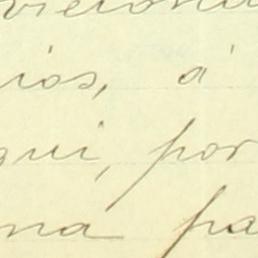 ios, á
qui, por
na pa